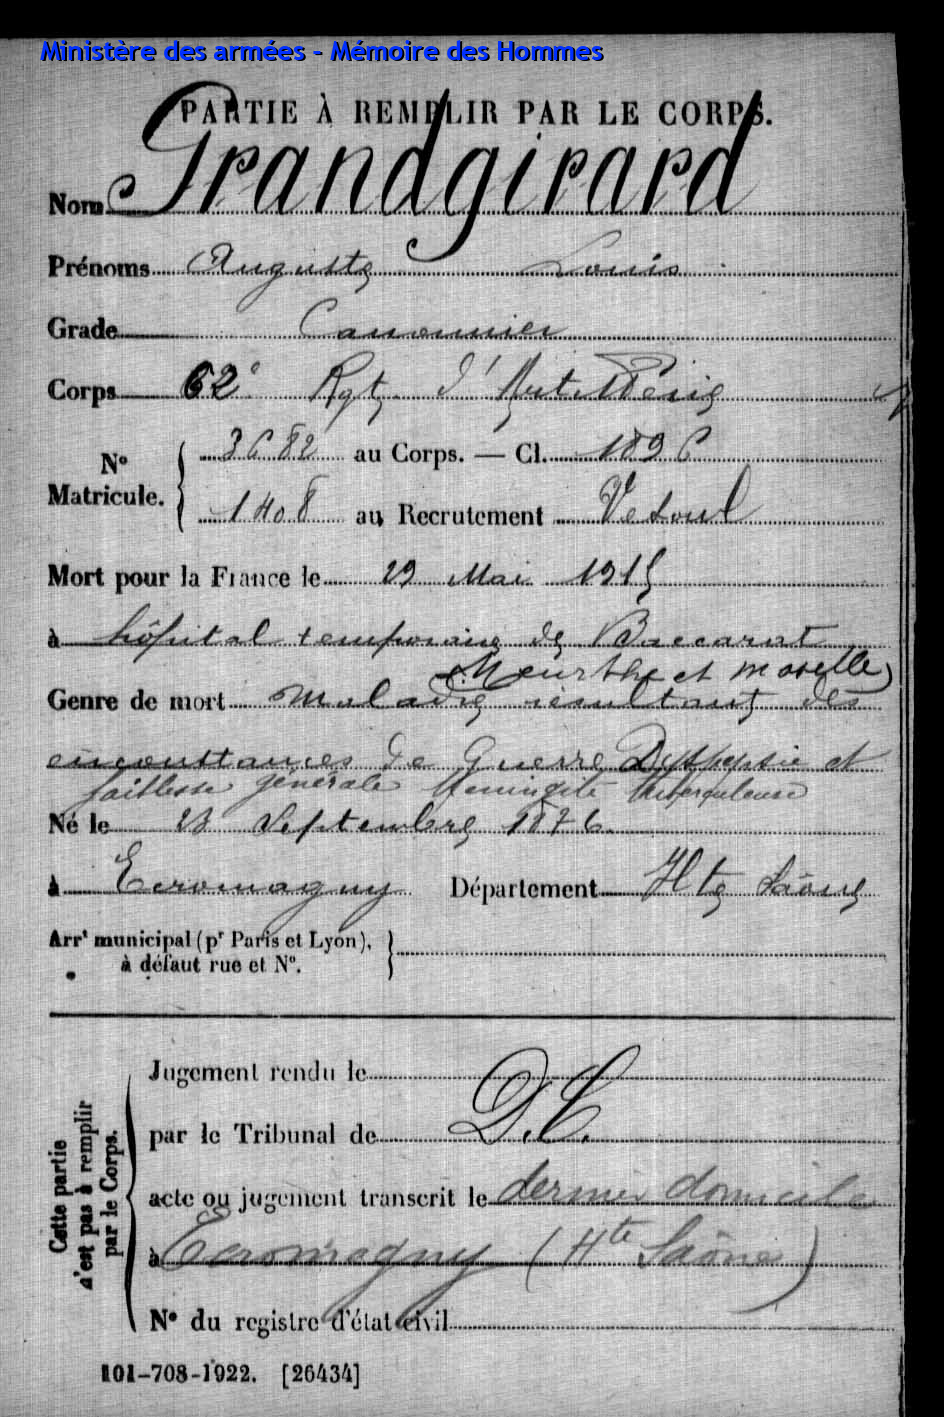 Ministère des armées - Mémoire des Hommes
PARTIE À REMPLIR PAR LE CORPS.
Nom Grandgirard
Prénoms Auguste Louis
Grade Canonnier
Corps 62e Rgt d'Artillerie
N° Matricule. 3682 au Corps. — Cl. 1896
1408 au Recrutement Vesoul
Mort pour la France le 29 Mai 1915
à hôpital temporaire de Baccarat
Meurthe et Moselle
Genre de mort maladie résultant des
circonstances de Guerre Dyspepsie et
faiblesse générale Méningite tuberculeuse
Né le 23 Septembre 1876
à Ecromagny Département Hte Saône
Arrt municipal (pr Paris et Lyon),
à défaut rue et N°.
Cette partie
n'est pas à remplir
par le Corps.
Jugement rendu le
par le Tribunal de D.C.
acte ou jugement transcrit le dernier domicile
à Ecromagny (Hte Saône)
N° du registre d'état civil
101-708-1922. [26434]